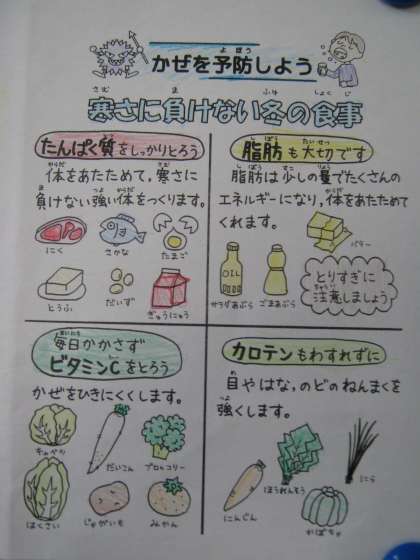 かぜを予防しよう
よぼう
寒さに負けない冬の食事
さむ ま ふゆ しょくじ
たんぱく質をしっかりとろう
しつ
体をあたためて、寒さに
からだ さむ
負けない強い体をつくります。
ま つよ からだ
にく
さかな
たまご
とうふ
だいず
ぎゅうにゅう
脂肪も大切です
しぼう たいせつ
脂肪は少しの量でたくさんの
しぼう すこ りょう
エネルギーになり、体をあたためて
からだ
くれます。
バター
OIL
サラダあぶら
ごまあぶら
とりすぎに
注意しましょう
ちゅうい
毎日かかさず
まいにち
ビタミンCをとろう
かぜをひきにくくします。
キャベツ
だいこん
ブロッコリー
はくさい
じゃがいも
みかん
カロテンもわすれずに
目やはな、のどのねんまくを
め
強くします。
つよ
にんじん
ほうれんそう
にら
かぼちゃ